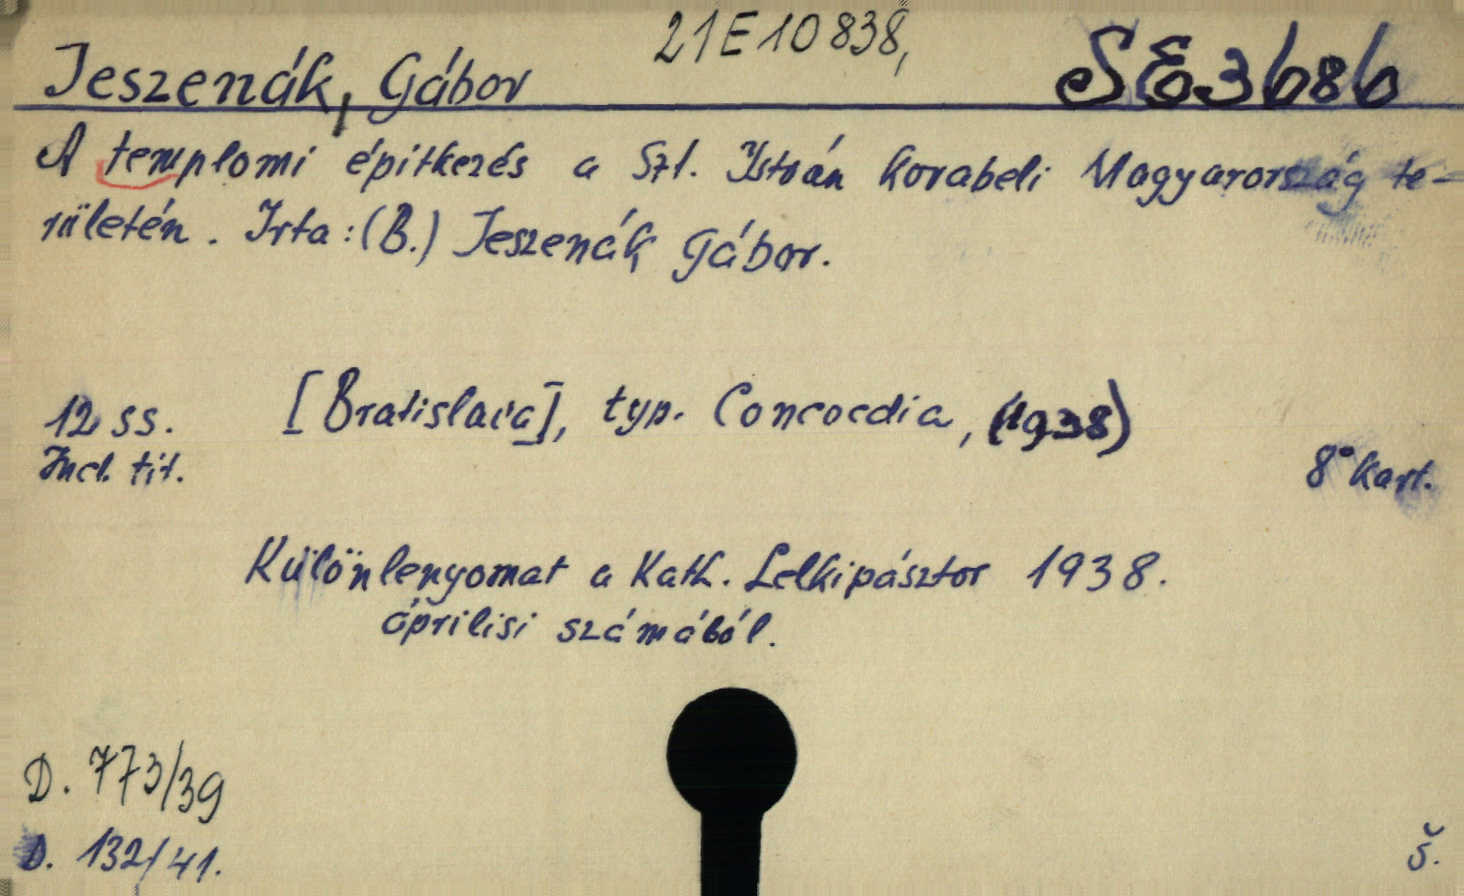 21E10838,
Jeszenák, Gábor SE3686
A templomi épitkezés a Szt. István korabeli Magyarország te-
rületén. Irta: (B.) Jeszenák Gábor.
12 ss. [Bratislava], typ. Concordia, (1938)
Incl. tit. 8° kart.
Különlenyomat a Kath. Lelkipásztor 1938.
áprilisi számából.
D. 773/39
D. 132/41.
Š.